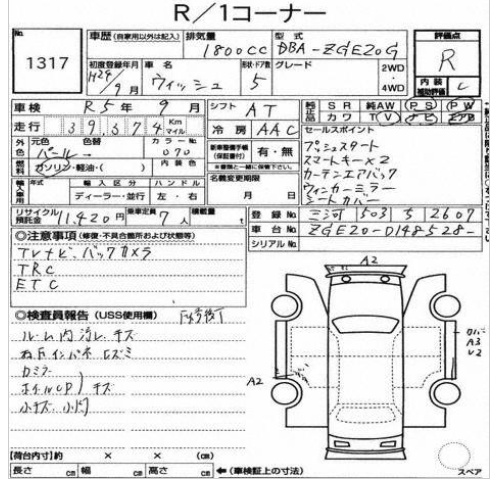 R／1コーナー
No. 1317
車歴 (自家用以外は記入) 排気量 1800cc 型式 DBA-ZGE20G 評価点 R
初度登録年月 H24/9月 車名 ウィッシュ 形状・ドア数 5 グレード 2WD・4WD 内装補助評価 C
車検 R5年9月 シフト AT 純正品 SR 純AW PS PW
走行 39,574 Km マイル 冷房 AAC カワ TV ナビ エアB
外色 元色 パール 色替 カラーNo. 070 新車整備手帳(保証書付) 有・無
セールスポイント
プッシュスタート
スマートキー×2
カーテンエアバック
ウィンカーミラー
シートカバー
燃料 ガソリン・軽油・( ) 内装色
輸入車用 年式 輸入区分 ディーラー・並行 ハンドル 左・右 名義変更期限 月 日
リサイクル預託金 11,420円 乗車定員 7人 積載量 t 登録No. 三河 503 ち 2607
車台No. ZGE20-0148528-
シリアルNo.
◎注意事項 (修復・不具合箇所および状態等)
TVナビ、バックカメラ
TRC
ETC
◎検査員報告 (USS使用欄)
ルーム内汚レ キズ
Dミラー
ホイルCP キズ
小キズ 小凹
A2
A2
A3
U2
スペア
【荷台内寸】約 × × (cm)
長さ cm 幅 cm 高さ cm ←(車検証上の寸法)